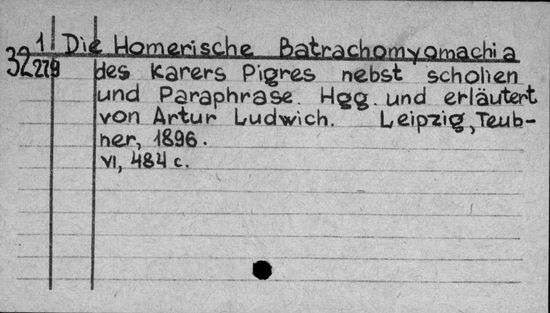 1 Die Homerische Batrachomyomachia
32279 des Karers Pigres nebst scholien
und Paraphrase. Hgg. und erläutert
von Artur Ludwich. Leipzig, Teub-
ner, 1896.
VI, 484 c.